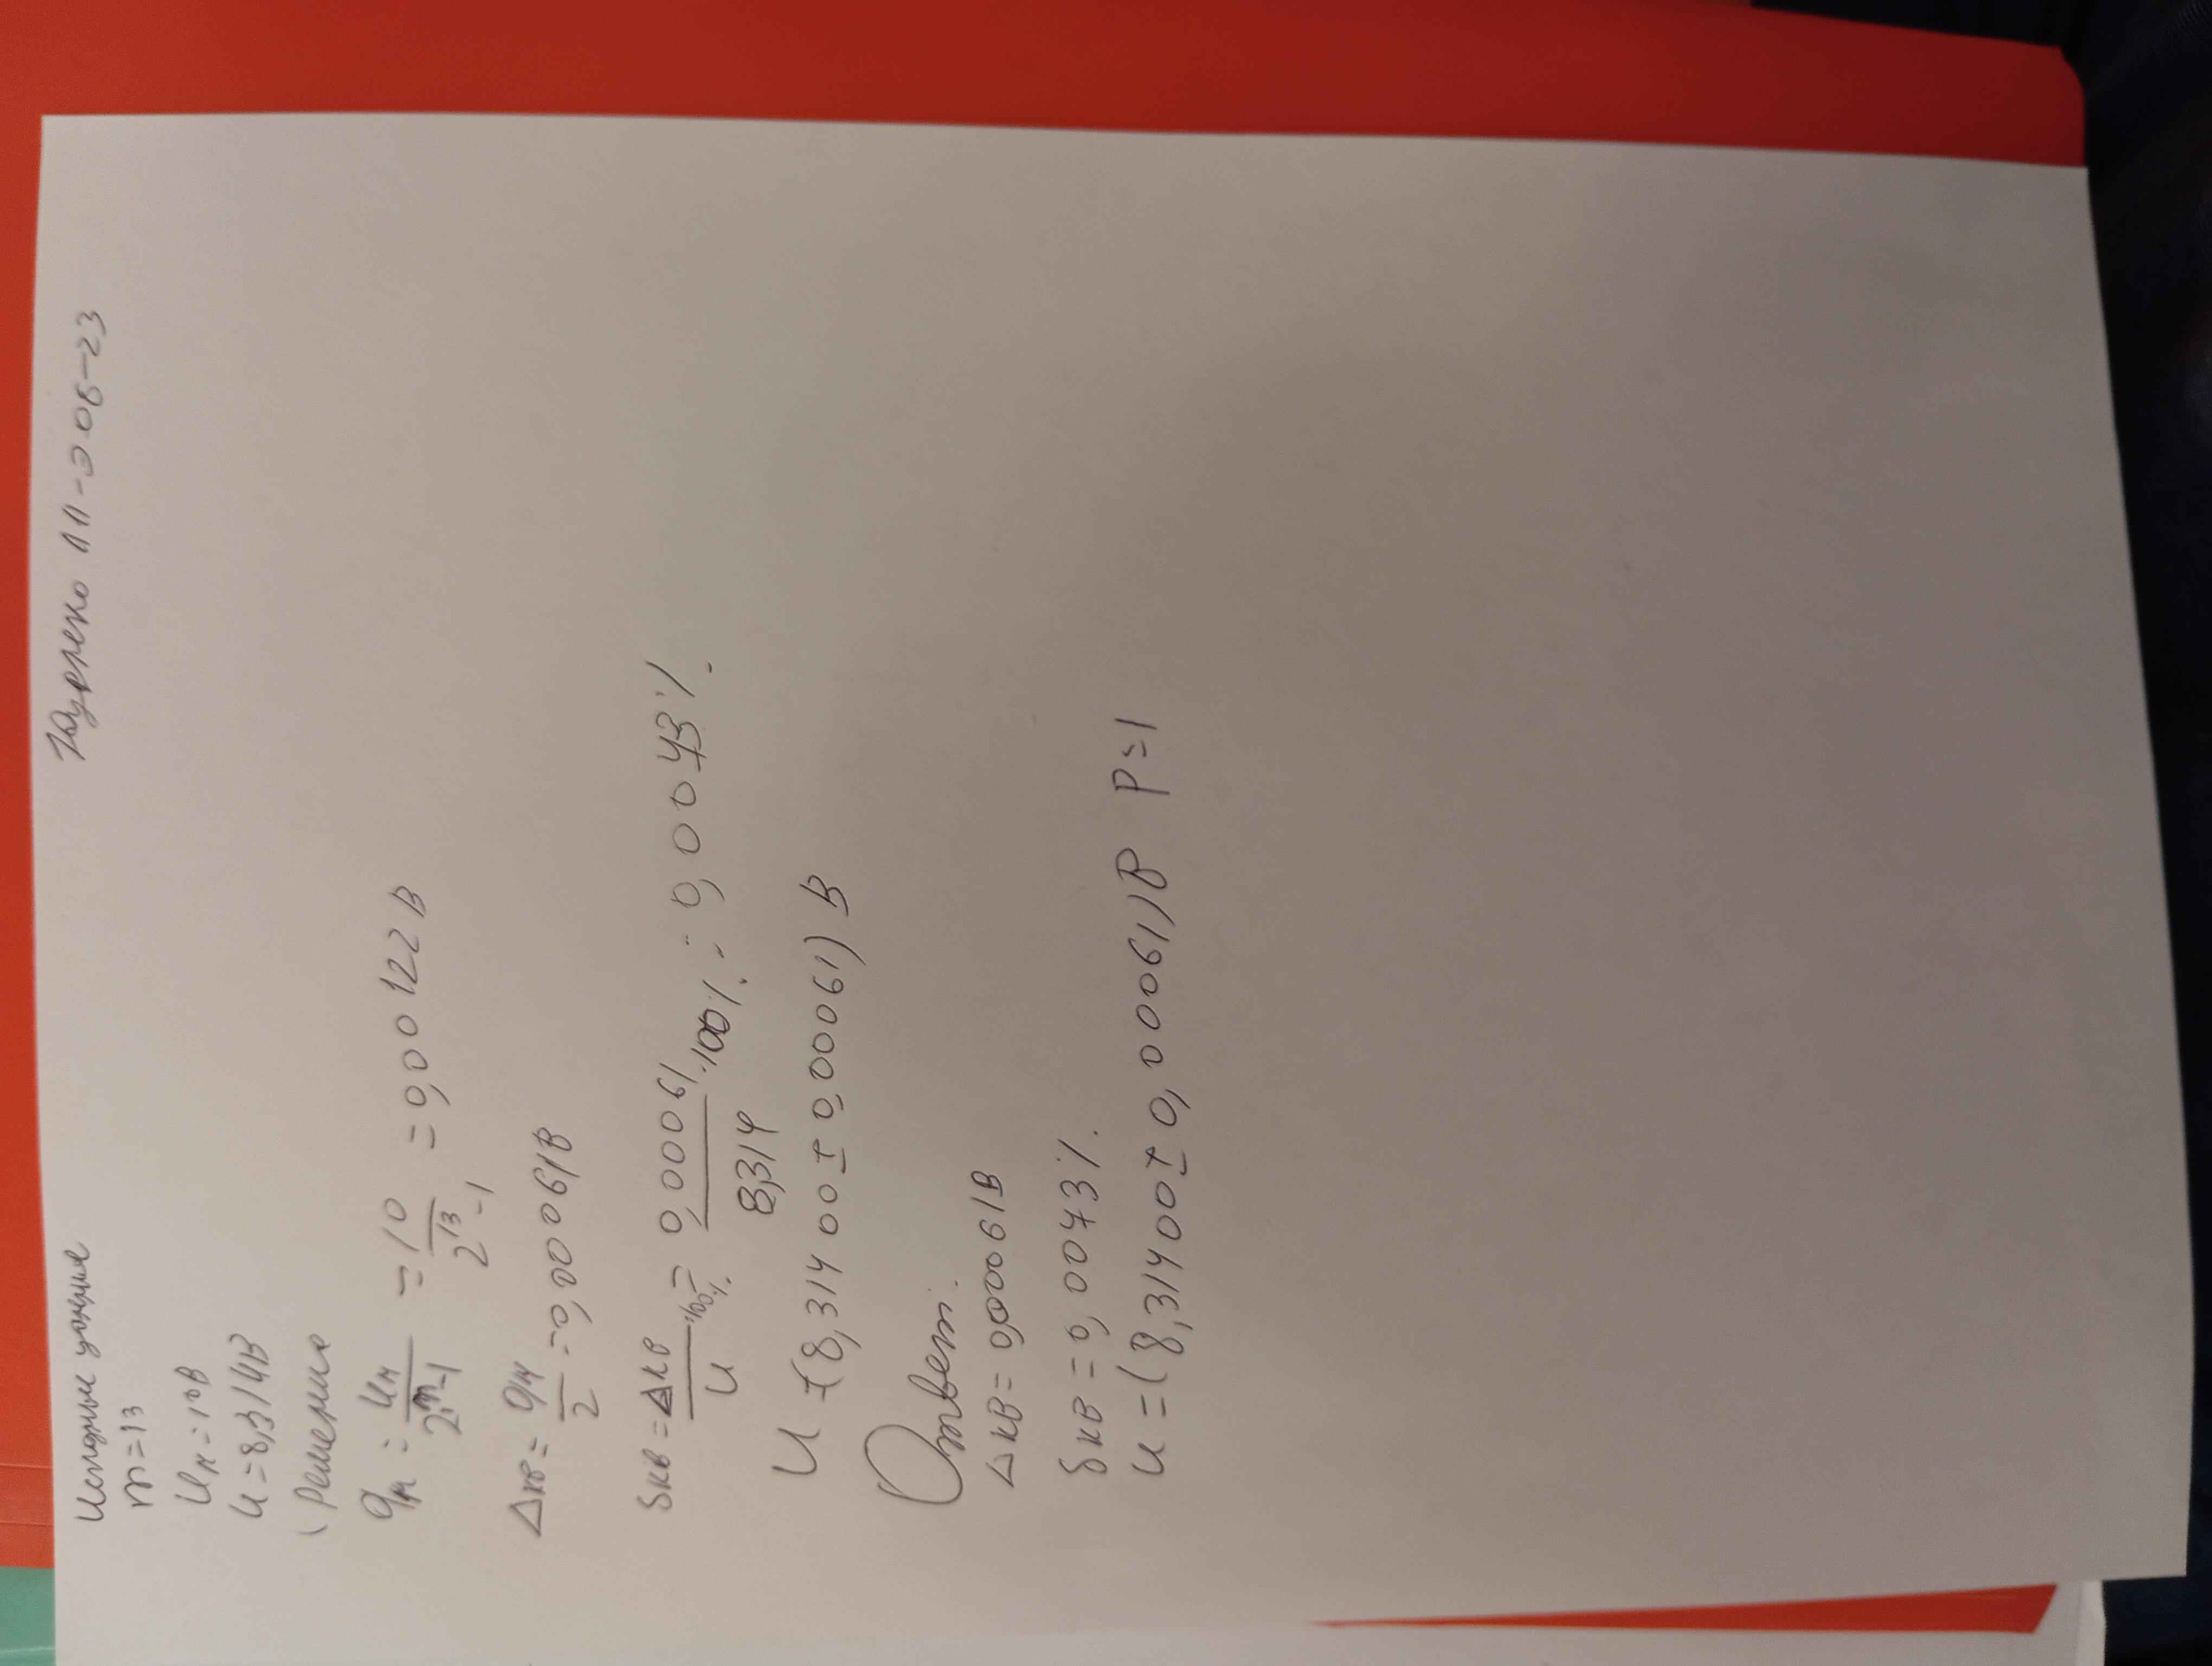 Юрренко ИП-Э06-23
Исходные условия
m=13
Uм=10В
U=8,314В
Решение
qм = Uм / 2^m-1 = 10 / 2^13-1 = 0,00122В
Δкв = qм / 2 = 0,00061В
δкв = Δкв / U ·100% = 0,00061 / 8,314 ·100% = 0,0073%
U = (8,31400±0,00061)В
Ответ.
Δкв = 0,00061В
δкв = 0,0073%
U = (8,31400±0,00061)В P=1